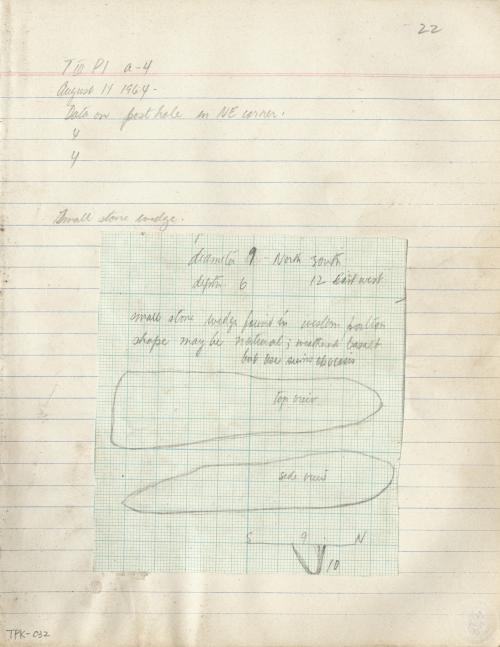 22
T III P1 a-4
August 11 1964-
Data on post hole in NE corner.
"
"
Small stone wedge.
diameter 9 - North South
depth 6 12 East west
small stone wedge found in western portion
shape may be natural; weathered basalt
but use seems obvious
top view
side view
S 9 N
10
TPK-032